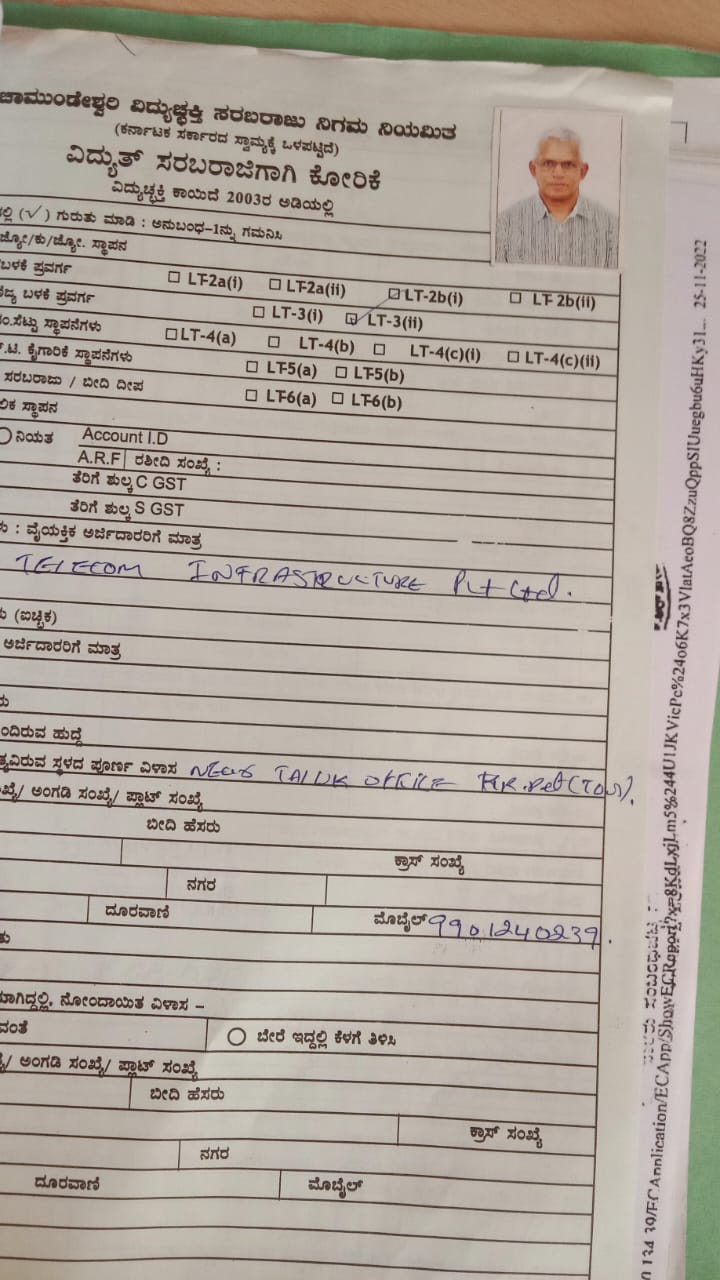 ಚಾಮುಂಡೇಶ್ವರಿ ವಿದ್ಯುಚ್ಛಕ್ತಿ ಸರಬರಾಜು ನಿಗಮ ನಿಯಮಿತ
(ಕರ್ನಾಟಕ ಸರ್ಕಾರದ ಸ್ವಾಮ್ಯಕ್ಕೆ ಒಳಪಟ್ಟಿದೆ)
ವಿದ್ಯುತ್ ಸರಬರಾಜಿಗಾಗಿ ಕೋರಿಕೆ
ವಿದ್ಯುಚ್ಛಕ್ತಿ ಕಾಯಿದೆ 2003ರ ಅಡಿಯಲ್ಲಿ
ಲ್ಲಿ (✓) ಗುರುತು ಮಾಡಿ : ಅನುಬಂಧ-1ನ್ನು ಗಮನಿಸಿ
ಜ್ಯೋ/ಕು/ಜ್ಯೋ. ಸ್ಥಾಪನ
ಬಳಕೆ ಪ್ರವರ್ಗ LT-2a(i) LT-2a(ii) LT-2b(i) LT- 2b(ii)
ಬಳಕೆ ಪ್ರವರ್ಗ LT-3(i) LT-3(ii)
ಂ.ಸೆಟ್ಟು ಸ್ಥಾಪನೆಗಳು LT-4(a) LT-4(b) LT-4(c)(i) LT-4(c)(ii)
.ಟಿ. ಕೈಗಾರಿಕೆ ಸ್ಥಾಪನೆಗಳು LT-5(a) LT-5(b)
ಸರಬರಾಜು / ಬೀದಿ ದೀಪ LT-6(a) LT-6(b)
ಲಿಕ ಸ್ಥಾಪನ
ನಿಯತ Account I.D
A.R.F ರಶೀದಿ ಸಂಖ್ಯೆ :
ತೆರಿಗೆ ಶುಲ್ಕ C GST
ತೆರಿಗೆ ಶುಲ್ಕ S GST
ರು : ವೈಯಕ್ತಿಕ ಅರ್ಜಿದಾರರಿಗೆ ಮಾತ್ರ
TELECOM INFRASTRUCTURE Pvt Ltd.
ರು (ಐಚ್ಛಿಕ)
ಅರ್ಜಿದಾರರಿಗೆ ಮಾತ್ರ
ರು
ಂದಿರುವ ಹುದ್ದೆ
ತ್ಯವಿರುವ ಸ್ಥಳದ ಪೂರ್ಣ ವಿಳಾಸ TALUK OFFICE
ಖ್ಯೆ/ ಅಂಗಡಿ ಸಂಖ್ಯೆ/ ಪ್ಲಾಟ್ ಸಂಖ್ಯೆ
ಬೀದಿ ಹೆಸರು
ಕ್ರಾಸ್ ಸಂಖ್ಯೆ
ನಗರ
ದೂರವಾಣಿ ಮೊಬೈಲ್ 9901240239.
ತು
ಯಾಗಿದ್ದಲ್ಲಿ, ನೋಂದಾಯಿತ ವಿಳಾಸ –
ವಂತೆ ಬೇರೆ ಇದ್ದಲ್ಲಿ ಕೆಳಗೆ ತಿಳಿಸಿ
ಖ್ಯೆ/ ಅಂಗಡಿ ಸಂಖ್ಯೆ/ ಪ್ಲಾಟ್ ಸಂಖ್ಯೆ
ಬೀದಿ ಹೆಸರು
ಕ್ರಾಸ್ ಸಂಖ್ಯೆ
ನಗರ
ದೂರವಾಣಿ ಮೊಬೈಲ್
25-11-2022